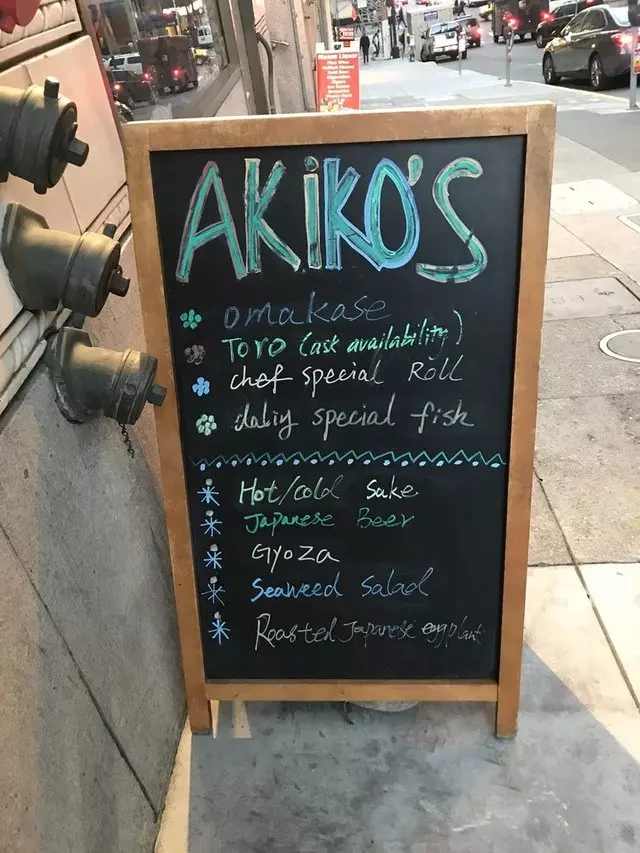 AKiKO'S
omakase
Toro (ask availability)
chef special Roll
daliy special fish
Hot/cold Sake
Japanese Beer
Gyoza
Seaweed Salad
Roasted Japanese eggplant